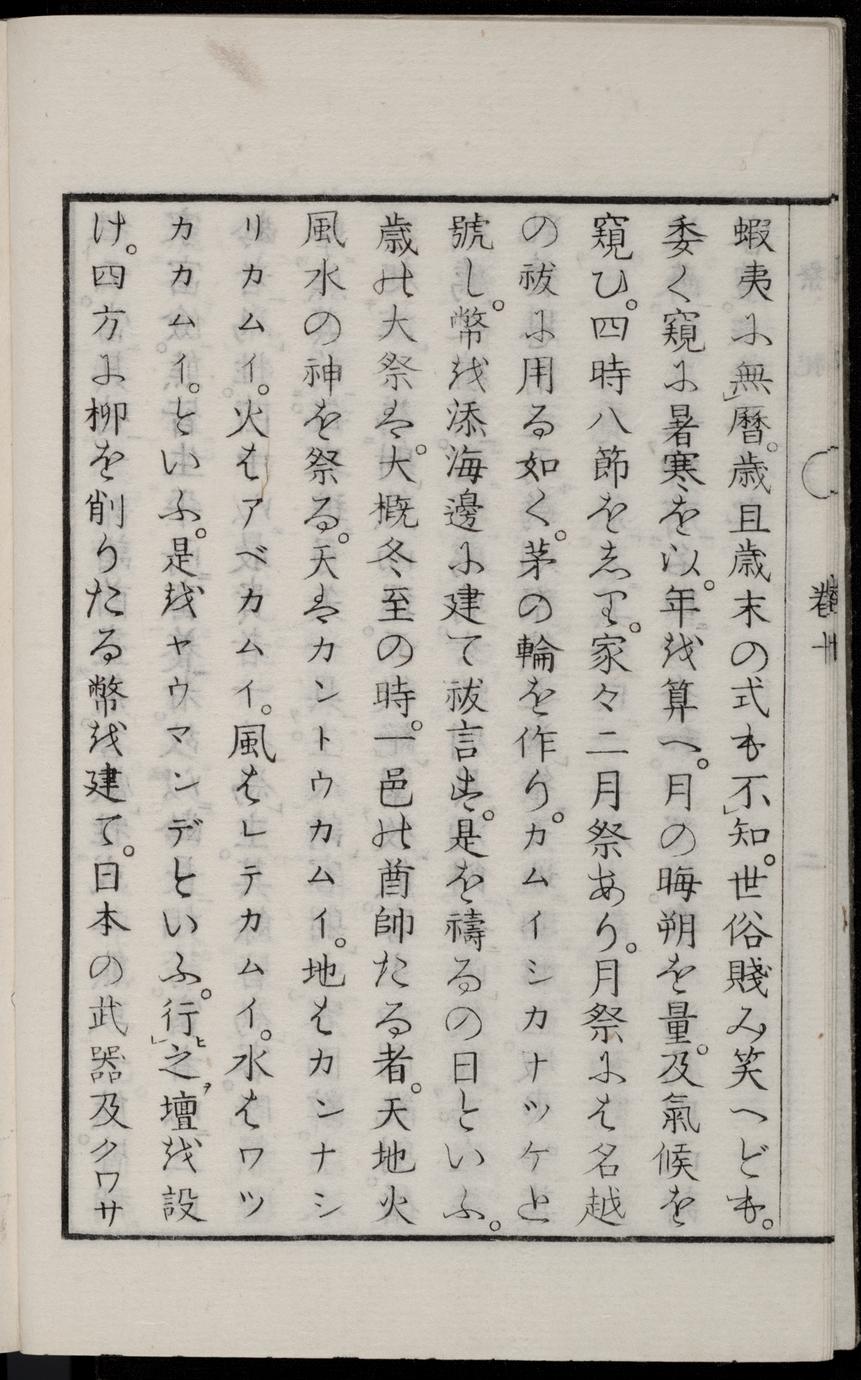 巻十
蝦夷に無暦。歳且歳末の式も不知。世俗賤み笑へども。
委く窺に暑寒を以。年越算へ。月の晦朔を量。及氣候を
窺ひ。四時八節を志り。家々二月祭あり。月祭には名越
の祓に用る如く。茅の輪を作り。カムイシカナツケと
號し。幣越添海邊に建て祓言す。是を禱るの日といふ。
歳の大祭は。大概冬至の時。一邑の酋帥たる者。天地火
風水の神を祭る。天はカントウカムイ。地はカンナシ
リカムイ。火はアベカムイ。風はレテカムイ。水はワツ
カカムイ。といふ。是越ヤウマンデといふ。行ヒ之ヲ壇越設
け。四方に柳を削りたる幣越建て。日本の武器及クワサ